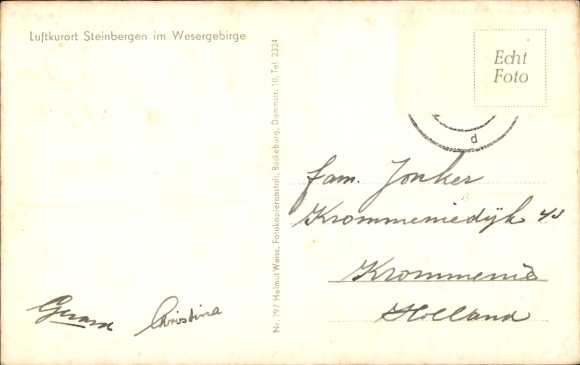 Luftkurort Steinbergen im Wesergebirge
Gerard Christina
Nr. 197 Helmut Weiss, Fotokopieranstalt, Bückeburg, Dammstr. 10, Tel. 2324
Echt
Foto
d
fam. Jonker
Krommeniedijk 43
Krommenie
Holland